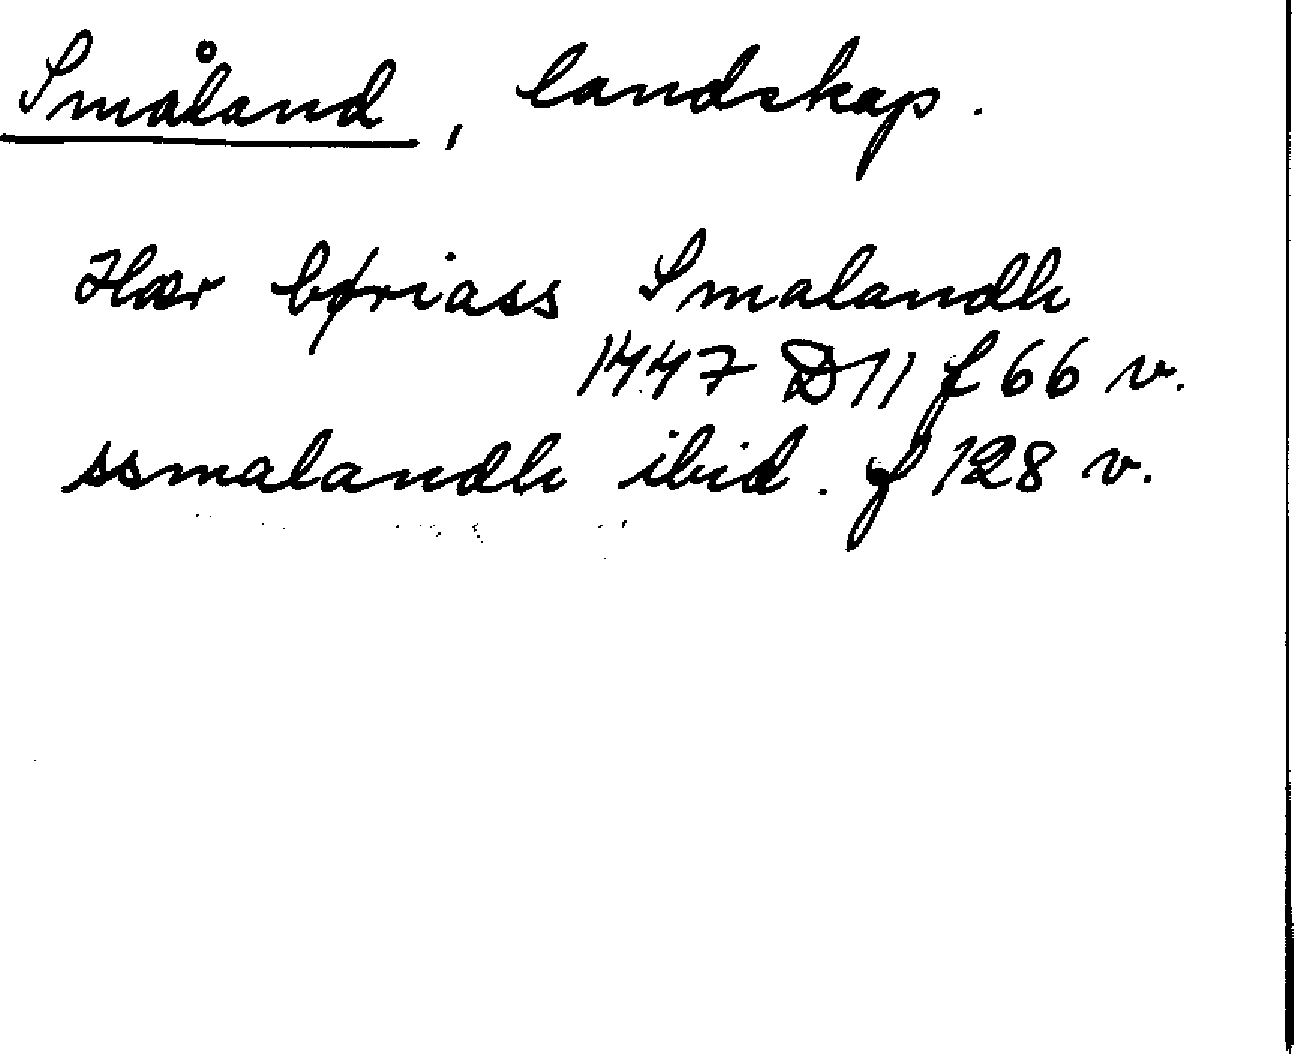 Småland, landskap.
Hær børiass Smalandh
1447 D11 f 66 v.
ssmalandh ibid. f 128 v.